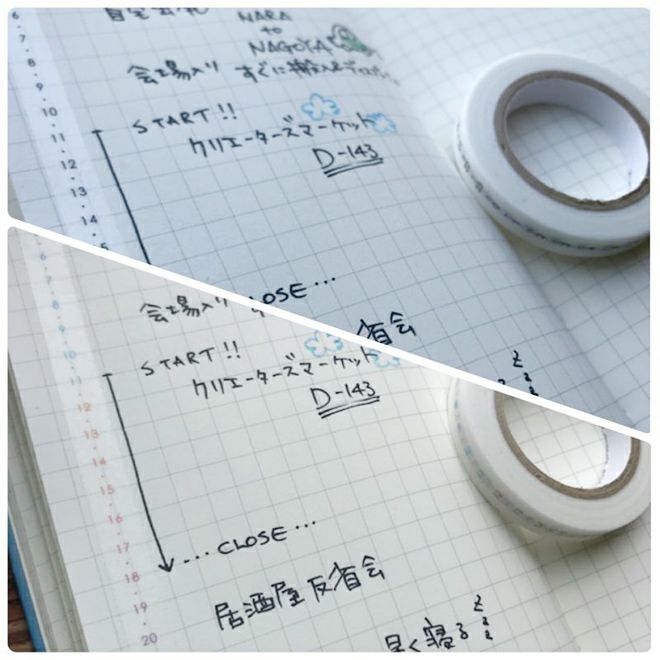 6
・
7
・
8
・
9
・
10
・
11
・
12
・
13
・
14
NARA
to
NAGOYA
会場入り すぐに
START!!
クリエーターズマーケット
D-143
CLOSE...
反省会
会場入り
START!!
クリエーターズマーケット
D-143
...CLOSE...
居酒屋反省会
早く寝る
zzz
6
・
7
・
8
・
9
・
10
・
11
・
12
・
13
・
14
・
15
・
16
・
17
・
18
・
19
・
20